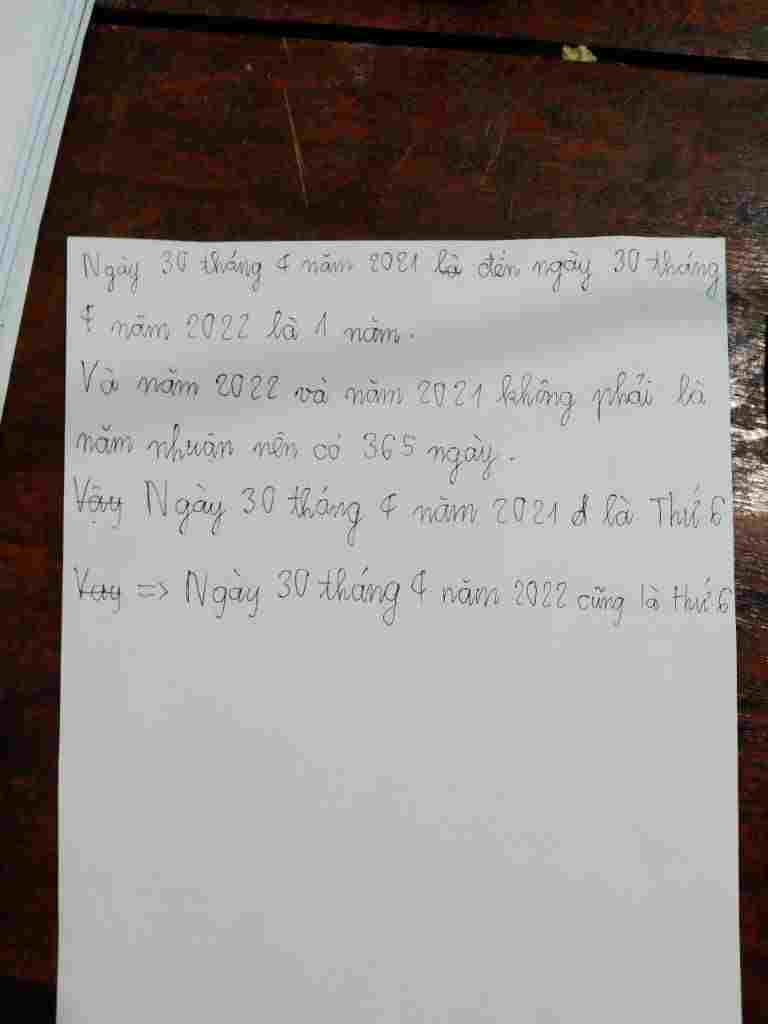 Ngày 30 tháng 4 năm 2021 là đến ngày 30 tháng
4 năm 2022 là 1 năm.
Và năm 2022 và năm 2021 không phải là
năm nhuận nên có 365 ngày.
Vậy Ngày 30 tháng 4 năm 2021 là Thứ 6
Vay => Ngày 30 tháng 4 năm 2022 cũng là thứ 6